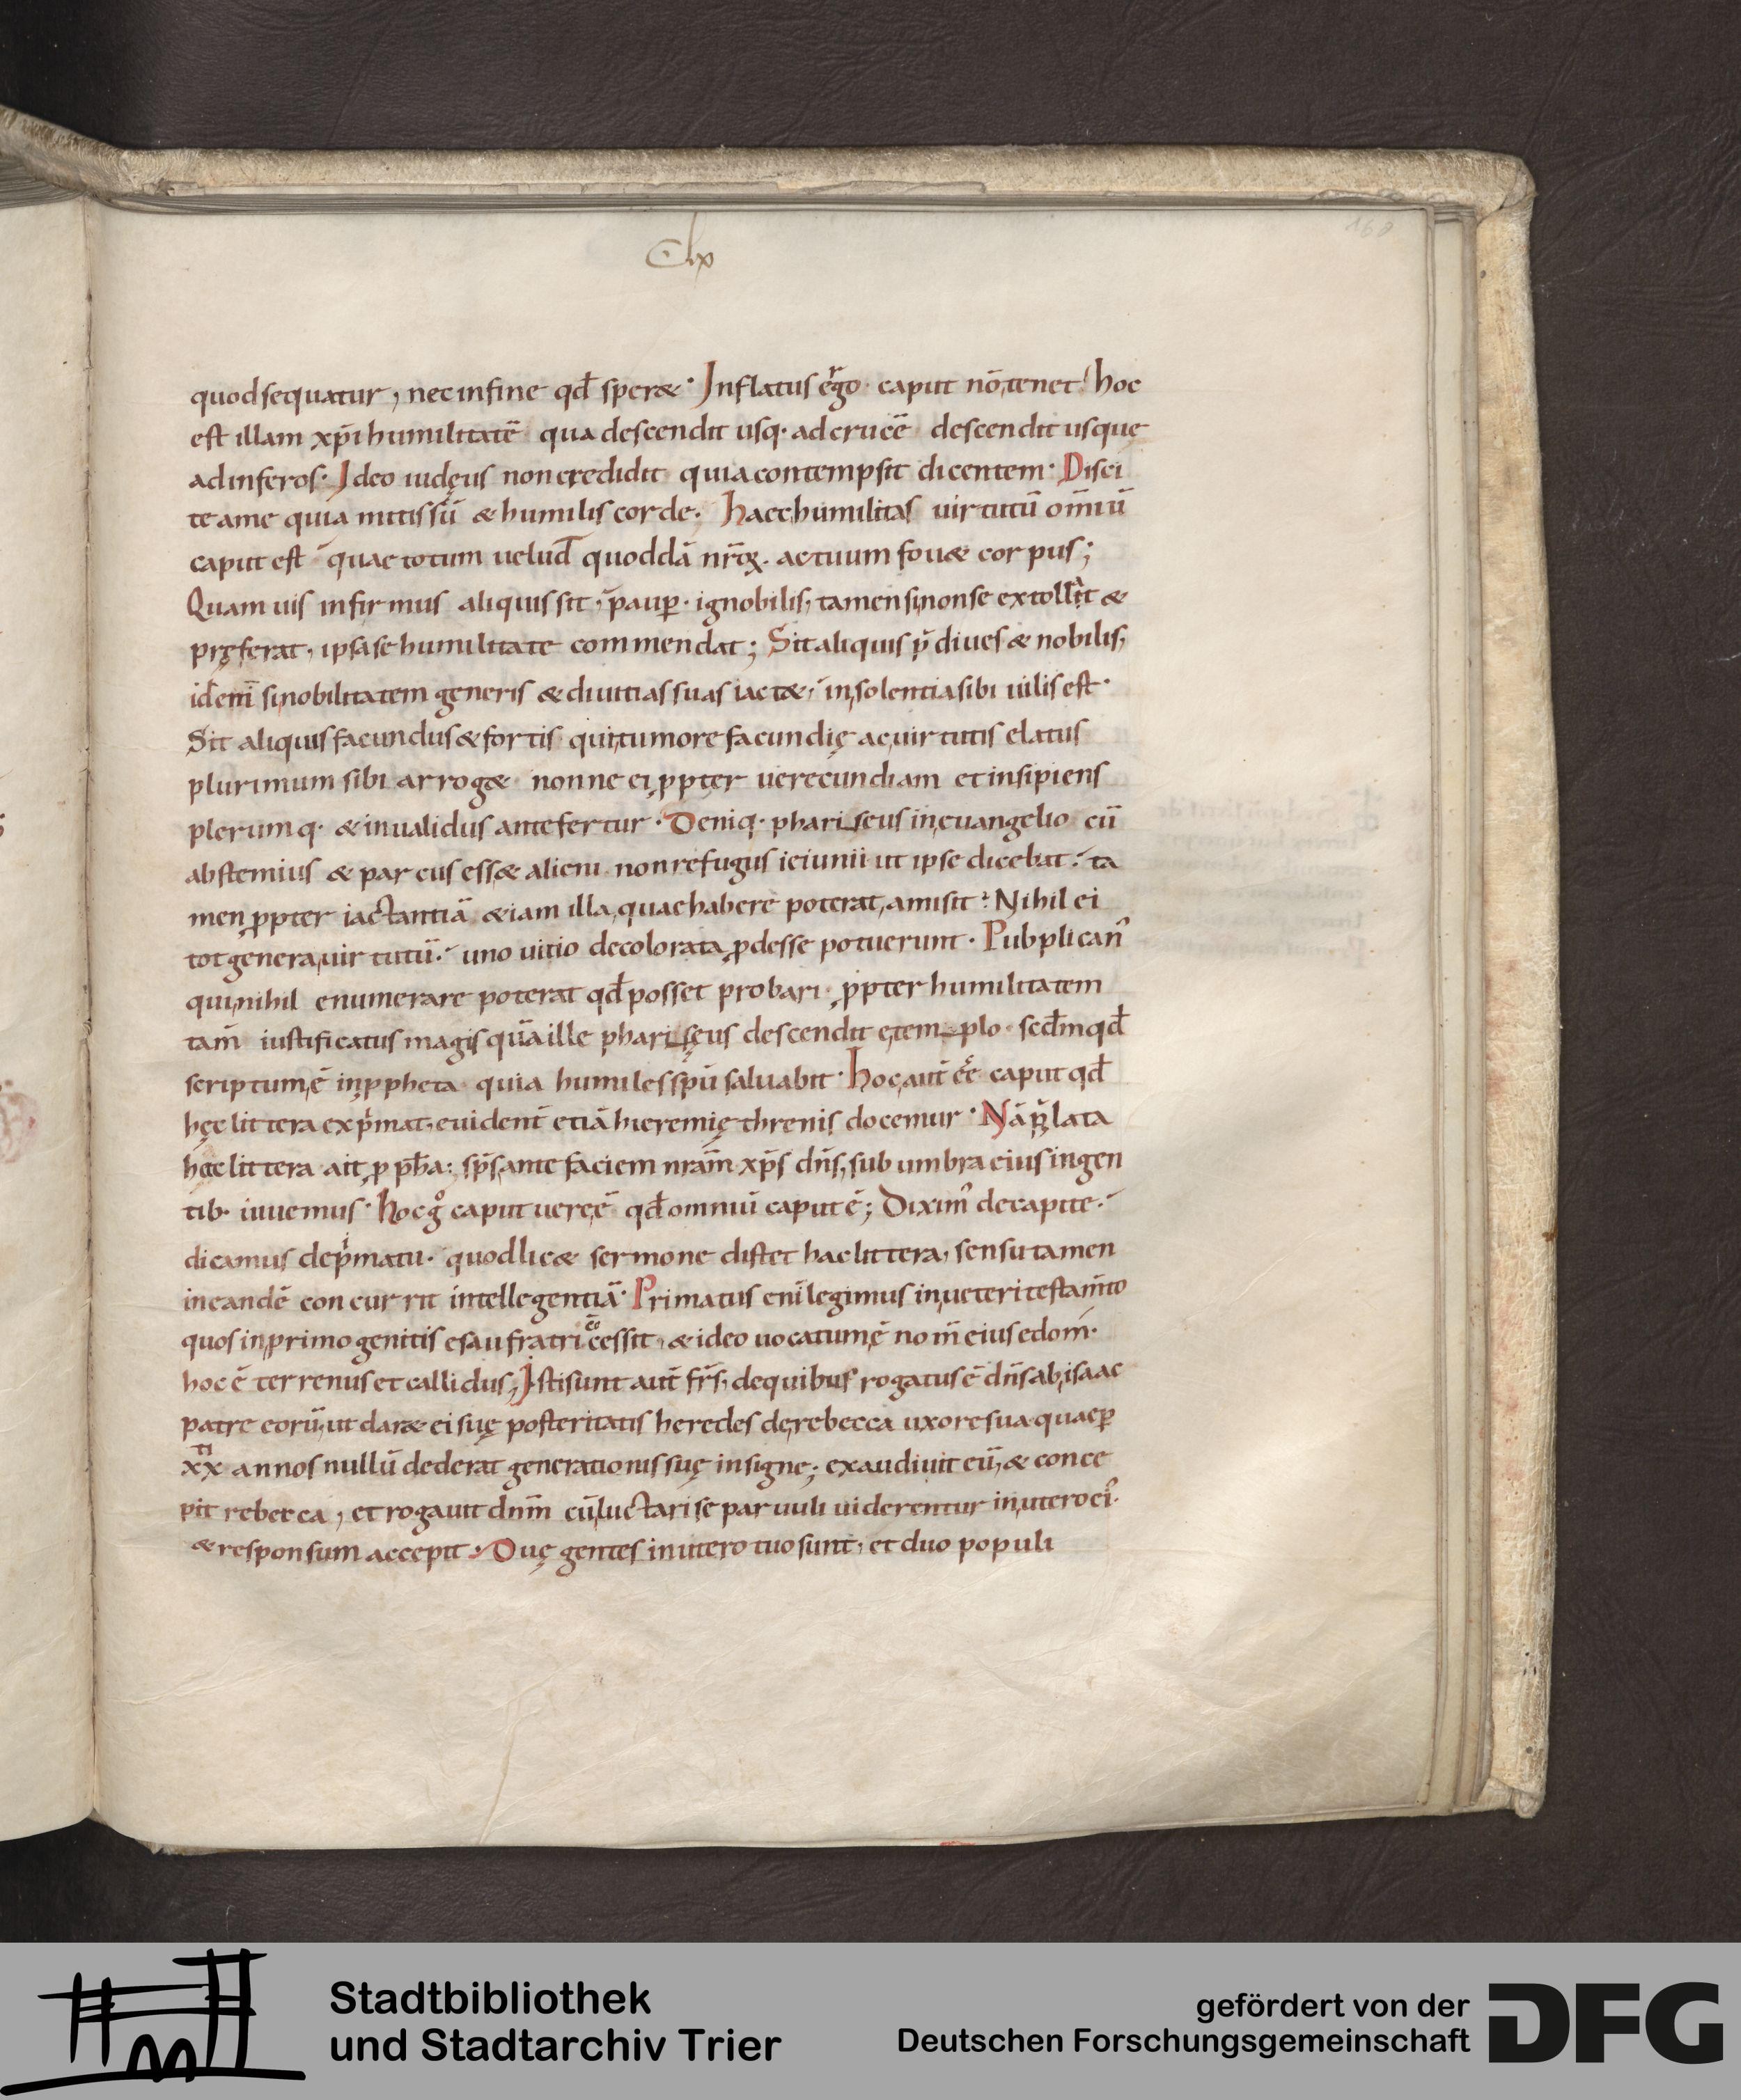 Clx
168
quod sequatur, nec in fine qđ speræ· Inflatus ergo caput nō tenet· hoc
est illam xp̄i humilitatē qua descendit usq· ad crucē descendit usque
ad inferos· Ideo iudęus non credidit quia contempsit dicentem· Disci
te a me quia mitis sū & humilis corde· Haec humilitas uirtutū om̄iū
caput est quae totum uelud quoddā nr̄oꝝ· actuum fouæ corpus;
Quamuis infirmus aliquis sit, paup̄· ignobilis, tamen si non se extollat &
pręferat, ipsa se humilitate commendat; Sit aliquis p̄ diues & nobilis,
idem si nobilitatem generis & diuitias suas iactæ, insolentia sibi uilis est·
Sit aliquis facundus & fortis qui tumore facundię ac uirtutis elatus
plurimum sibi arrogæ nonne ei ꝓpter uerecundiam et insipiens
plerumq· & inualidus antefertur· Deniq· phariseus in euangelio cū
abstemius & parcus essæ alieni non refugus ieiunii ut ipse dicebat· ta
men ꝓpter iactantiā &iam illa quae habere poterat, amisit· Nihil ei
tot genera uirtutū· uno uitio decolorata ꝓdesse potuerunt· Pubplican᾽
qui nihil enumerare poterat qđ posset probari· ꝓpter humilitatem
tam̄ iustificatus magis quā ille phariseus descendit e templo· sec̄dm qđ
scriptum ē in ꝓpheta quia humiles spū saluabit· Hoc aut̄ ēe caput qđ
hęc littera exp̄mat, euident̄ etiā hieremię threnis docemur· Nā p̄lata
hęc littera ait ꝓph̄a: sp̄s ante faciem nr̄am xp̄s dn̄s, sub umbra eius in gen
tib· uiuemus· Hoc g° caput uere ē qđ omniū caput ē; Dixim᾽ de capite·
dicamus de p̄matu· quod licæ sermone distet hac littera, sensu tamen
in eandē concurrit intellegentiā· Primatus enī legimus in ueteri testam̄to
quos in primogenitis esau fratri cessit, & ideo uocatum ē nom̄ eius edom̄·
hoc ē terrenus et callidus, Isti sunt aut̄ fr̄s, de quibus rogatus ē dn̄s ab isaac
patre eorū, ut daræ ei suę posteritatis heredes de rebecca uxore sua quae ꝑ
xx annos nullū dederat generationis suę insigne; exaudiuit eū, & conce
pit rebecca, et rogauit dn̄m cū luctari se paruuli uiderentur in utero ei᾽·
& responsum accepit· Duę gentes in utero tuo sunt, et duo populi
Stadtbibliothek
und Stadtarchiv Trier
gefördert von der
Deutschen Forschungsgemeinschaft
DFG